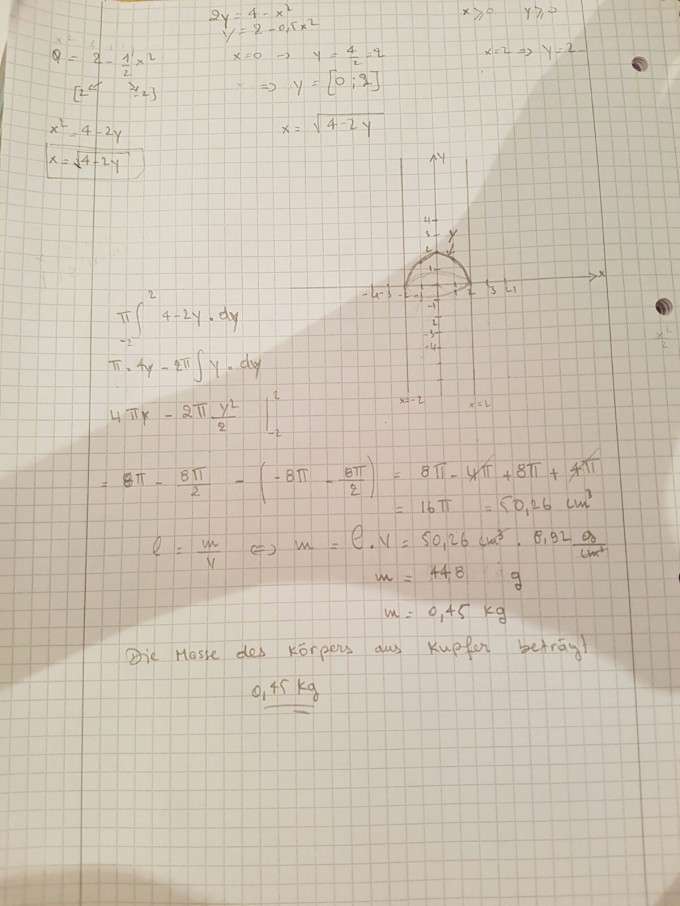 2y = 4 - x²
x ≥ 0 y ≥ 0
y = 2 - 0,5x²
0 = 2 - 1/2 x²
x=0 → y = 4/2 = 2
x=2 ⇒ y = 2
⇒ y = [0 ; 2]
x² = 4 - 2y
x = √4-2y
x = √4-2y
y
4
3
2
1
x
-4 -3 -2 -1 1 2 3 4
-1
2
-3
-4
x=-2 x=2
x²/2
π ∫ 2 -2 4 - 2y · dy
π · 4y - 2π ∫ y · dy
4πx - 2π y²/2 | 2 -2
= 8π - 8π/2 - (-8π - 8π/2) = 8π - 4π + 8π + 4π
= 16π = 50,26 cm³
ρ = m/V ⇔ m = ρ · V = 50,26 cm³ · 8,92 g/cm³
m = 448 g
m = 0,45 kg
Die Masse des Körpers aus Kupfer beträgt
0,45 kg